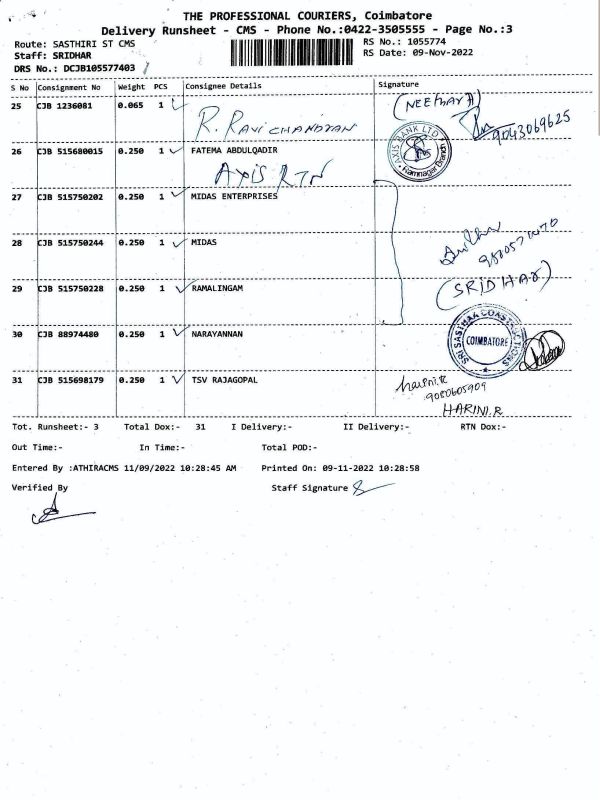 THE PROFESSIONAL COURIERS, Coimbatore
Delivery Runsheet - CMS - Phone No.:0422-3505555 - Page No.:3
Route: SASTHIRI ST CMS
RS No.: 1055774
Staff: SRIDHAR
RS Date: 09-Nov-2022
DRS No.: DCJB105577403
S No Consignment No Weight PCS Consignee Details Signature
25 CJB 1236081 0.065 1
R. RAVICHANDRAN
(NEETHAVA)
9043069625
26 CJB 515680015 0.250 1 FATEMA ABDULQADIR
AXIS RTN
AXIS BANK LTD
Ramnagar Branch
27 CJB 515750202 0.250 1 MIDAS ENTERPRISES
28 CJB 515750244 0.250 1 MIDAS
29 CJB 515750228 0.250 1 RAMALINGAM
(SRIDHAR)
30 CJB 88974480 0.250 1 NARAYANNAN
SRI SASTHAA CONSTRUCTIONS
COIMBATORE
31 CJB 515698179 0.250 1 TSV RAJAGOPAL
harini.R
9080605909
HARINI.R
Tot. Runsheet:- 3 Total Dox:- 31 I Delivery:- II Delivery:- RTN Dox:-
Out Time:- In Time:- Total POD:-
Entered By :ATHIRACMS 11/09/2022 10:28:45 AM Printed On: 09-11-2022 10:28:58
Verified By Staff Signature